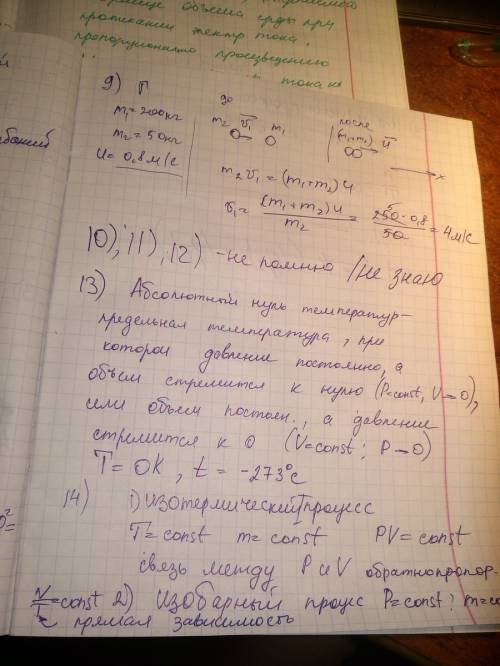 объема среды при
протекании электр тока,
пропорционально произведению
тока на
9)
m₁ = 200кг
m₂ = 50кг
U = 0,8 м/с
до
m₂ v̅₁ m₁
после
(m₁+m₂) u̅
x
m₂v₁ = (m₁+m₂)u
v₁ = (m₁+m₂)u / m₂ = 250·0,8 / 50 = 4м/с
10), 11), 12) - не помню / не знаю
13) Абсолютный нуль температур-
предельная температура, при
которой давление постоянно, а
объем стремится к нулю (P=const, V→0),
или объем постоян., а давление
стремится к 0 (V=const; P→0)
T = 0K, t = -273°c
14) 1) изотермический процесс
T = const m = const PV = const
связь между P и V обратнопропор-
V/T = const 2) изобарный процес P=const; m=co
прямая зависимость